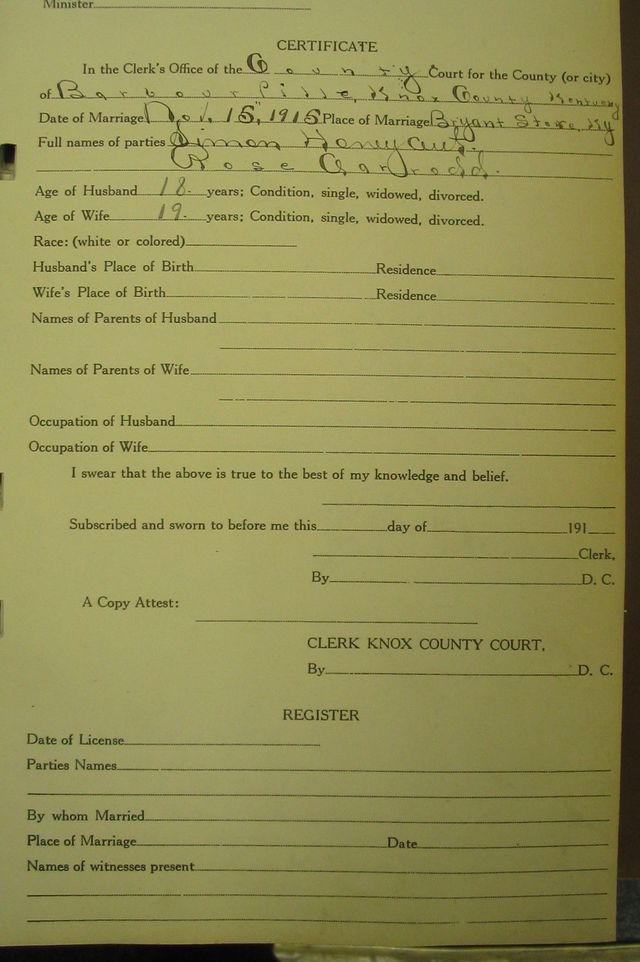 Minister
CERTIFICATE
In the Clerk's Office of the County Court for the County (or city)
of Barbourville, Knox County Kentucky
Date of Marriage Nov. 15, 1915 Place of Marriage Bryant Store, Ky
Full names of parties Simon Honeycutt,
Rose Garrodd.
Age of Husband 18 years; Condition, single, widowed, divorced.
Age of Wife 19 years; Condition, single, widowed, divorced.
Race: (white or colored)
Husband's Place of Birth Residence
Wife's Place of Birth Residence
Names of Parents of Husband
Names of Parents of Wife
Occupation of Husband
Occupation of Wife
I swear that the above is true to the best of my knowledge and belief.
Subscribed and sworn to before me this day of 191
Clerk,
By D. C.
A Copy Attest:
CLERK KNOX COUNTY COURT.
By D. C.
REGISTER
Date of License
Parties Names
By whom Married
Place of Marriage Date
Names of witnesses present